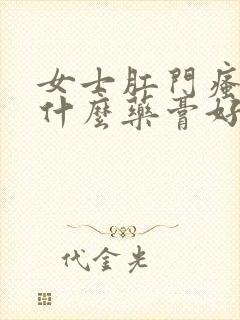 女士肛門瘙
什麼藥膏好
代金光